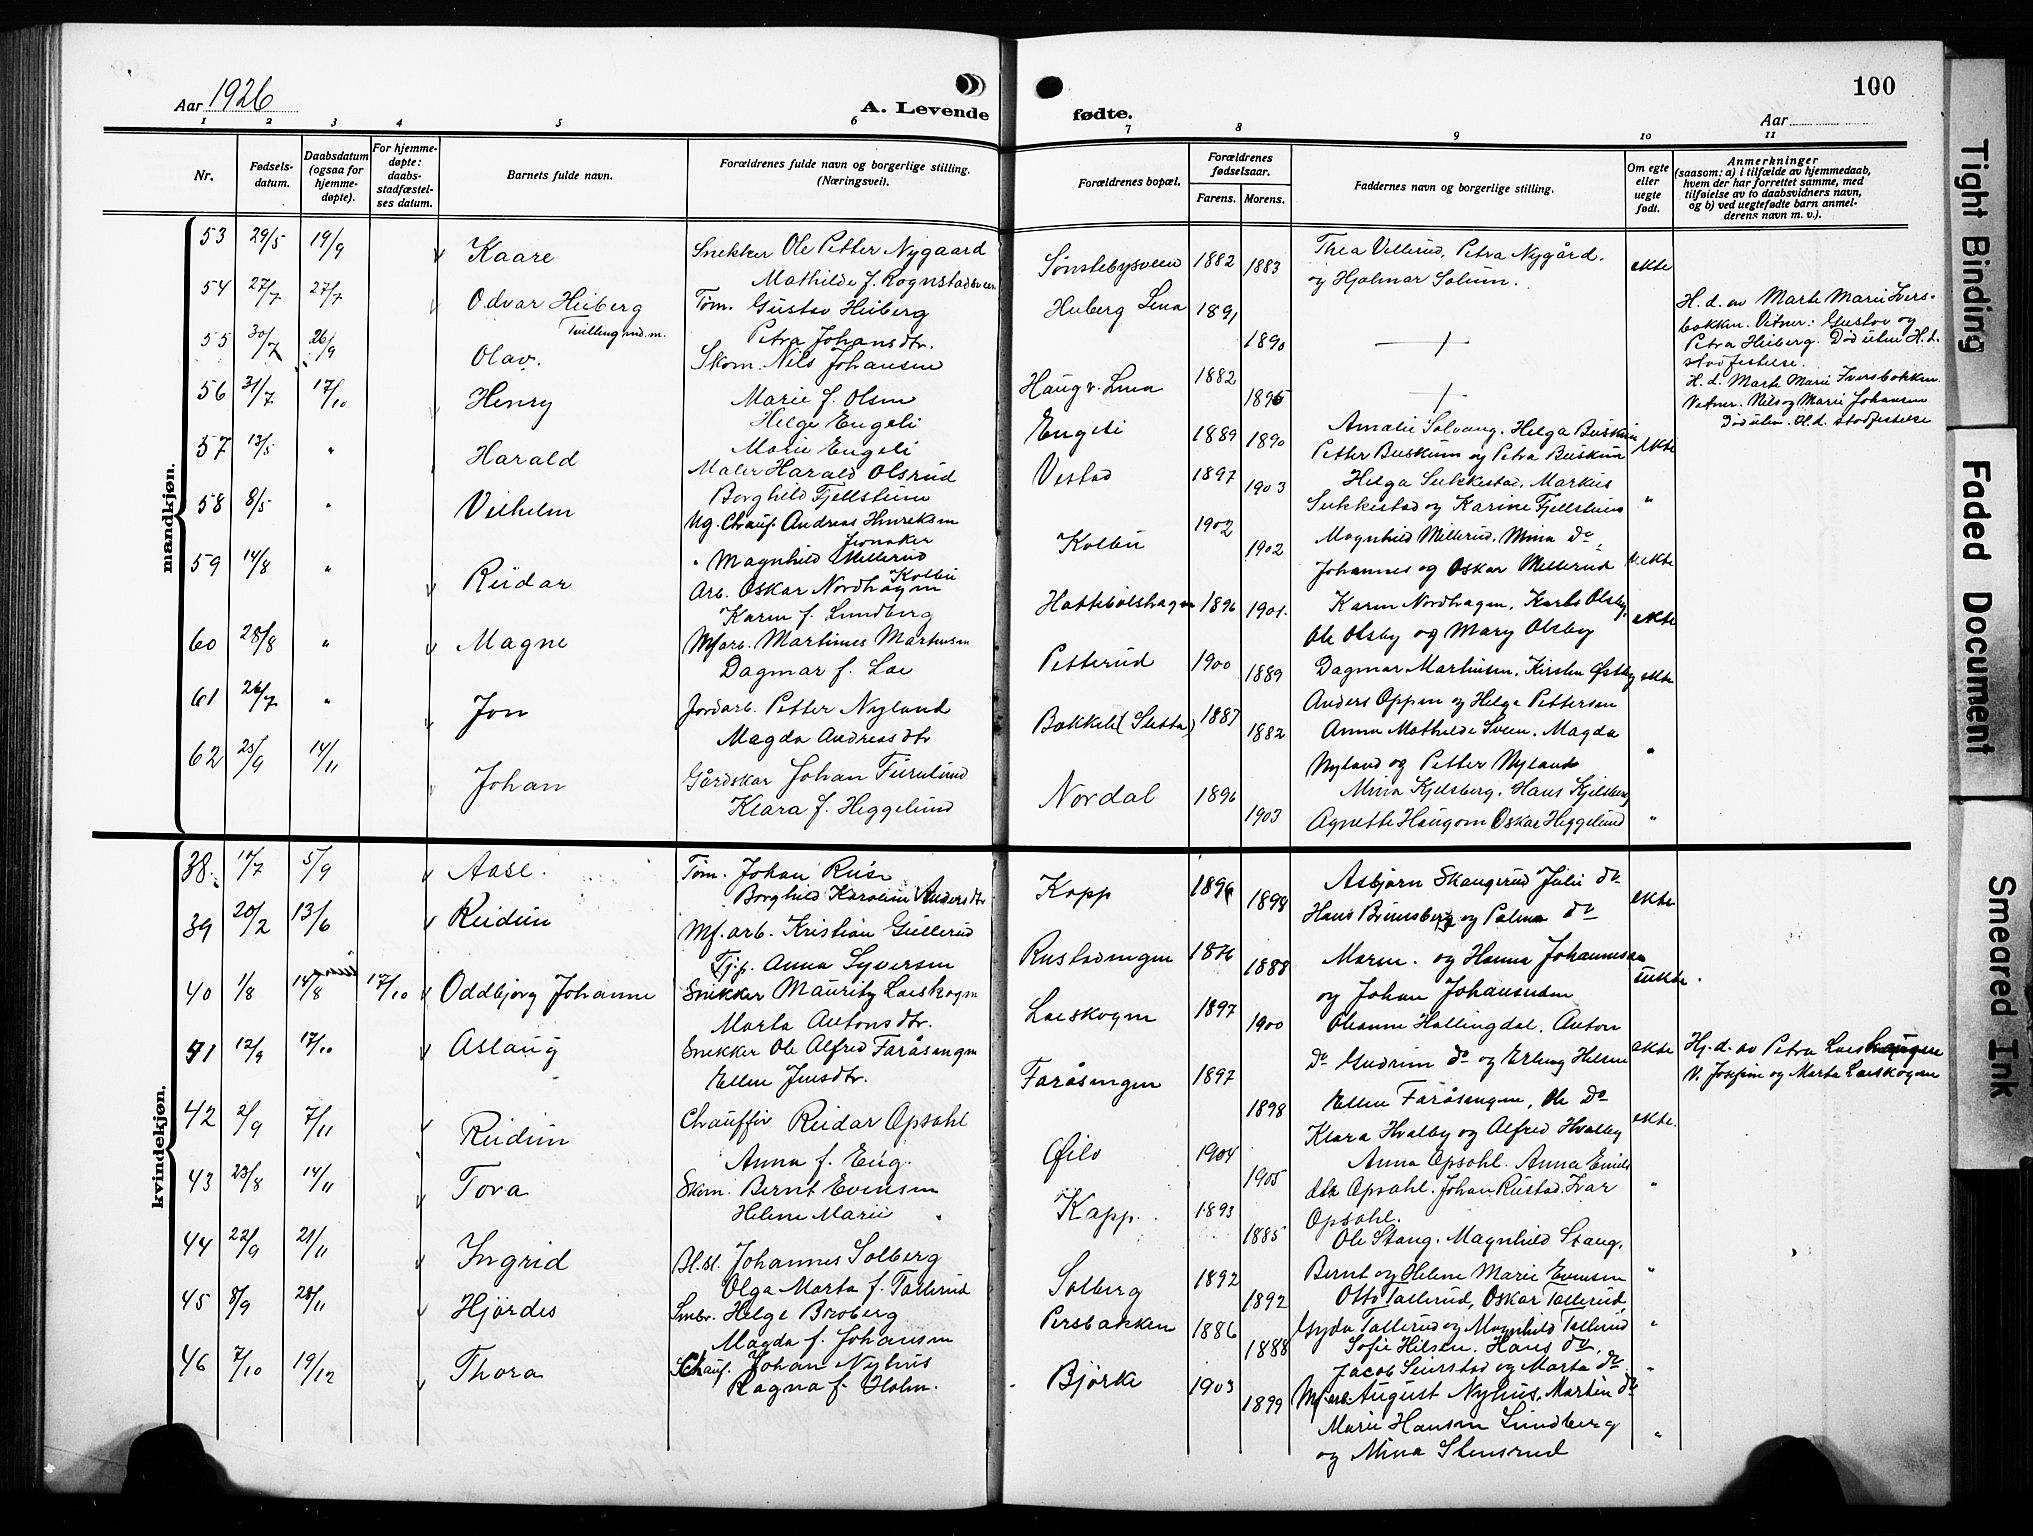 Aar 1926
A. Levende
fødte.
100
Aar
1 2 3 4 5 6 7 8 9 10 11
Nr.
Fødsels-
datum.
Daabsdatum
(ogsaa for
hjemme-
døpte).
For hjemme-
døpte:
daabs-
stadfæstel-
ses datum.
Barnets fulde navn.
Forældrenes fulde navn og borgerlige stilling.
(Næringsvei).
Forældrenes bopæl.
Forældrenes
fødselsaar.
Farens. Morens.
Faddernes navn og borgerlige stilling.
Om egte
eller
uegte
født.
Anmerkninger
(saasom: a) i tilfælde av hjemmedaab,
hvem der har forrettet samme, med
tilføielse av to daabsvidners navn,
og b) ved uegtefødte barn anmel-
derens navn m. v.).
mandkjøn.
53 29/5 19/9 Kaare Snekker Ole Petter Nygaard Sønstebysveen 1882 1883 Thea Vellerud, Petra Nygård.
Mathilde f. Rognstadsveen og Hjalmar Solum. ekte
54 27/7 27/7 Odvar Heiberg Tøm. Gustav Heiberg Heiberg Lena 1891
Tvilling md. m. Petra Johansdtr. 1890
H. d. av Marte Marie Ivers-
bakken. Vitner: Gustav og
Petra Heiberg. Død uten H. d.
stadfestelse.
55 30/7 26/9 Olav. Skom. Nils Johansen Haug v. Lena 1882
Marie f. Olsen 1895
H. d. Marte Marie Iversbakken
Vitner. Nils og Marie Johansen
Død uten H. d. stadfestelse
56 31/7 17/10 Henry Helge Engeli Engeli 1889 1890 Amalie Solvang. Helga Buskum
Marie Engeli Petter Buskum og Petra Buskum ekte
57 13/5 " Harald Maler Harald Olsrud Vestad 1897 1903 Helga Sukkestad, Markus
Borghild Fjellstuen Sukkestad og Karine Fjellstuen "
58 8/5 " Vilhelm Ug. Chauf. Andreas Henriksen Kolbu 1902 1902 Magnhild Millerud. Mina do,
" Magnhild Millerud Johannes og Oskar Millerud uekte
Kolbu
59 14/8 " Reidar Arb. Oskar Nordhagen Hattebølshagen 1896 1901. Karen Nordhagen, Karls Olsby,
Karen f. Lundberg Ole Olsby og Mary Olsby ekte
60 28/8 " Magne Mf arb. Martinus Martinsen Petterud 1900 1889 Dagmar Martinsen, Kirsten Østby
Dagmar f. Lae Anders Oppen og Helge Pettersen ekte
61 26/7 " Jon Jordarb. Petter Nyland Bakkelt (Sletta) 1887 1882 Anna Mathilde Sveen. Magda
Magda Andreasdtr Nyland og Petter Nyland "
62 25/9 14/11 Johan Gårdskar Johan Furulund Nordal 1896 1903 Mina Kjelsberg. Hans Kjelsberg
Klara f. Heggelund Agnette Haugom Oskar Heggelund "
kvindekjøn.
38. 17/7 5/9 Aase. Tøm. Johan Ruse Kapp 1896 1898 Asbjørn Skaugerud Julie do
Borghild Karoline Andersdtr Hans Brunsberg og Palma do ekte
39 20/2 13/6 Reidun Mf. arb. Kristian Gullerud Rustadengen 1876 1888 Maren. og Hanna Johannesen
Tj.p. Anna Syversen og Johan Johansen uekte.
40 1/8 14/8 17/10 Oddbjørg Johanne Snikker Mauritz Laeskogen Laeskogen 1897 1900 Oleanne Hallingdal. Anton
Marta Antonsdtr. do Gudrun do og Erling Hilsen ekte
Hj. d. av Petra Laeshaugen
V. Josefine og Marta Laeskogen
41 12/9 17/10 Aslaug Snekker Ole Alfred Faråsengen Faråsengen 1897 1898 Ellen Faråsengen, Ole do
Ellen Jensdtr. Klara Hvalby og Alfred Hvalby ekte.
42 2/9 7/11 Reidun Chauffør Reidar Opsahl Øilo 1904 1905 Anna Opsahl. Anna Emils
Anna f. Eng. dtr Opsahl. Johan Rustad. Ivar
Opsahl. "
43 23/8 14/11 Tora Skom. Bernt Evensen Kapp. 1893 1885 Ole Stang. Magnhild Stang.
Helene Marie " Bernt og Helene Marie Evensen "
44 22/9 21/11 Ingrid Bl.sl. Johannes Solberg Solberg 1892 1892 Otto Tallerud, Oskar Tallerud,
Olga Marta f. Tallerud Gyda Tallerud og Magnhild Tallerud "
45 8/9 28/11 Hjørdes Smbr. Helge Broberg Persbakken 1886 1888 Sofie Hilsen. Hans do,
Magda f. Johansen Jacob Seierstad og Marta do. "
46 7/10 19/12 Thora Schauf. Johan Nyhus Bjørke 1903 1899 Mf arb August Nyhus, Martin do
Ragna f. Holm. Marie Hansen Lundberg
og Mina Stensrud "
Tight Binding
Faded Document
Smeared Ink